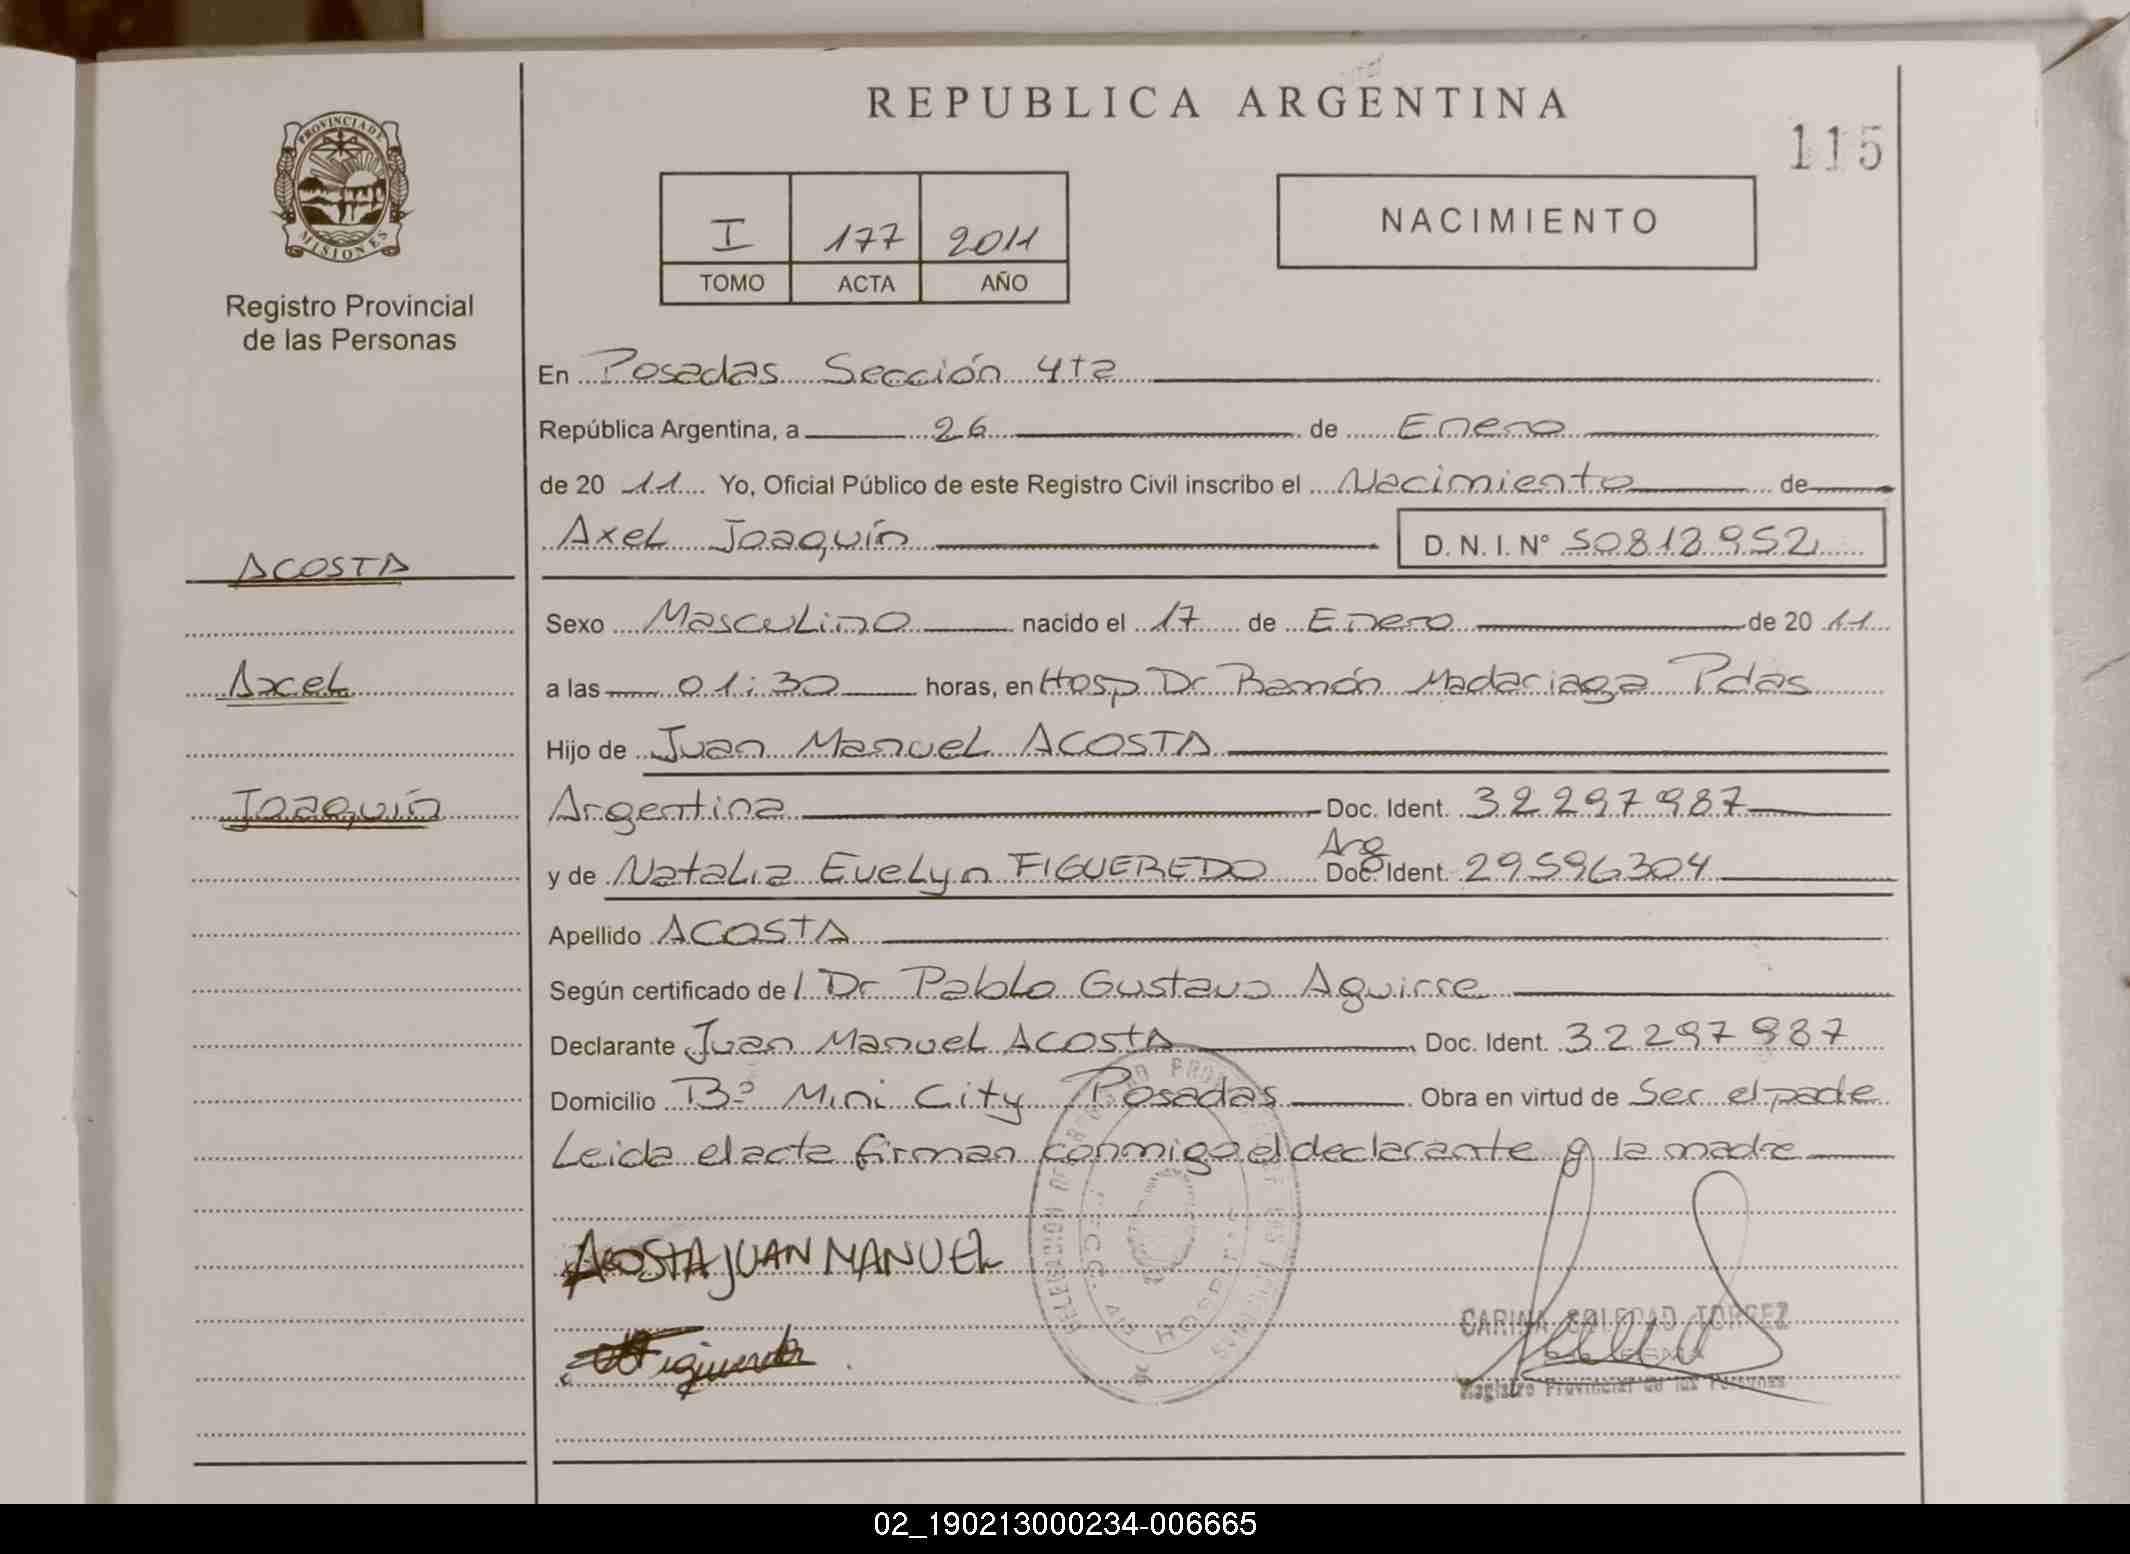 REPUBLICA ARGENTINA
115
PROVINCIA DE
MISIONES
Registro Provincial
de las Personas
I 177 2011
TOMO ACTA AÑO
NACIMIENTO
En Posadas Sección 4ta
República Argentina, a 26 de Enero
de 20 11 Yo, Oficial Público de este Registro Civil inscribo el Nacimiento de
Axel Joaquín D. N. I. N° 50813952
ACOSTA
Axel
Joaquín
Sexo Masculino nacido el 17 de Enero de 20 11
a las 01:30 horas, en Hosp Dr Ramón Madariaga Pdas
Hijo de Juan Manuel ACOSTA
Argentina Doc. Ident. 32297987
Arg
y de Natalia Evelyn FIGUEREDO Doc. Ident. 29596304
Apellido ACOSTA
Según certificado de Dr Pablo Gustavo Aguirre
Declarante Juan Manuel ACOSTA Doc. Ident. 32297987
Domicilio Bº Mini City Posadas Obra en virtud de Ser el padre
Leida el acta firman conmigo el declarante y la madre
ACOSTA JUAN MANUEL
CARINA SOLEDAD TORREZ
Registro Provincial de las Personas
02_190213000234-006665